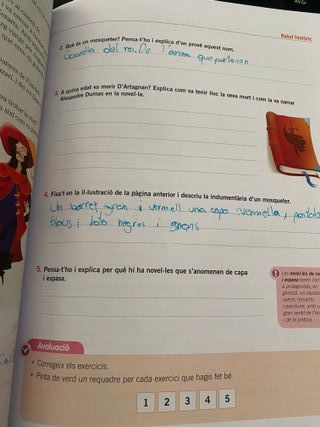 Relat històric
2. Què és un mosqueter? Pensa-t'ho i explica d'on prové aquest nom.
Guardia del rei. De l'arma que portaven
3. A quina edat va morir D'Artagnan? Explica com va tenir lloc la seva mort i com la va narrar
Alexandre Dumas en la novel·la.
4. Fixa't en la il·lustració de la pàgina anterior i descriu la indumentària d'un mosqueter.
Un barret gran i vermell una capa vermella, pantalo
blaus i negres i grans
5. Pensa-t'ho i explica per què hi ha novel·les que s'anomenen de capa
i espasa.
Les novel·les de
i espasa tenen
a protagonista, en
general, un
valent, romàntic
i aventurer, amb
gran sentit de l'ho
i de la justícia.
Avaluació
• Corregeix els exercicis.
• Pinta de verd un requadre per cada exercici que hagis fet bé.
1 2 3 4 5